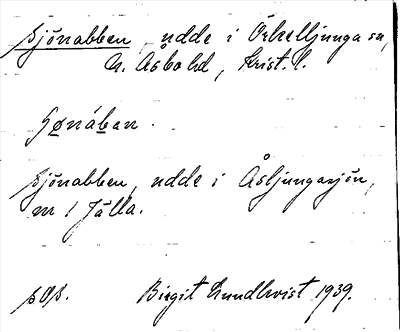 Sjönabben, udde i Örkelljunga sn,
N. Åsbo hd, Krist. l.
Sjönabben, udde i Åsljungasjön,
m / Jälla.
sOs. Birgit Lundkvist 1939.